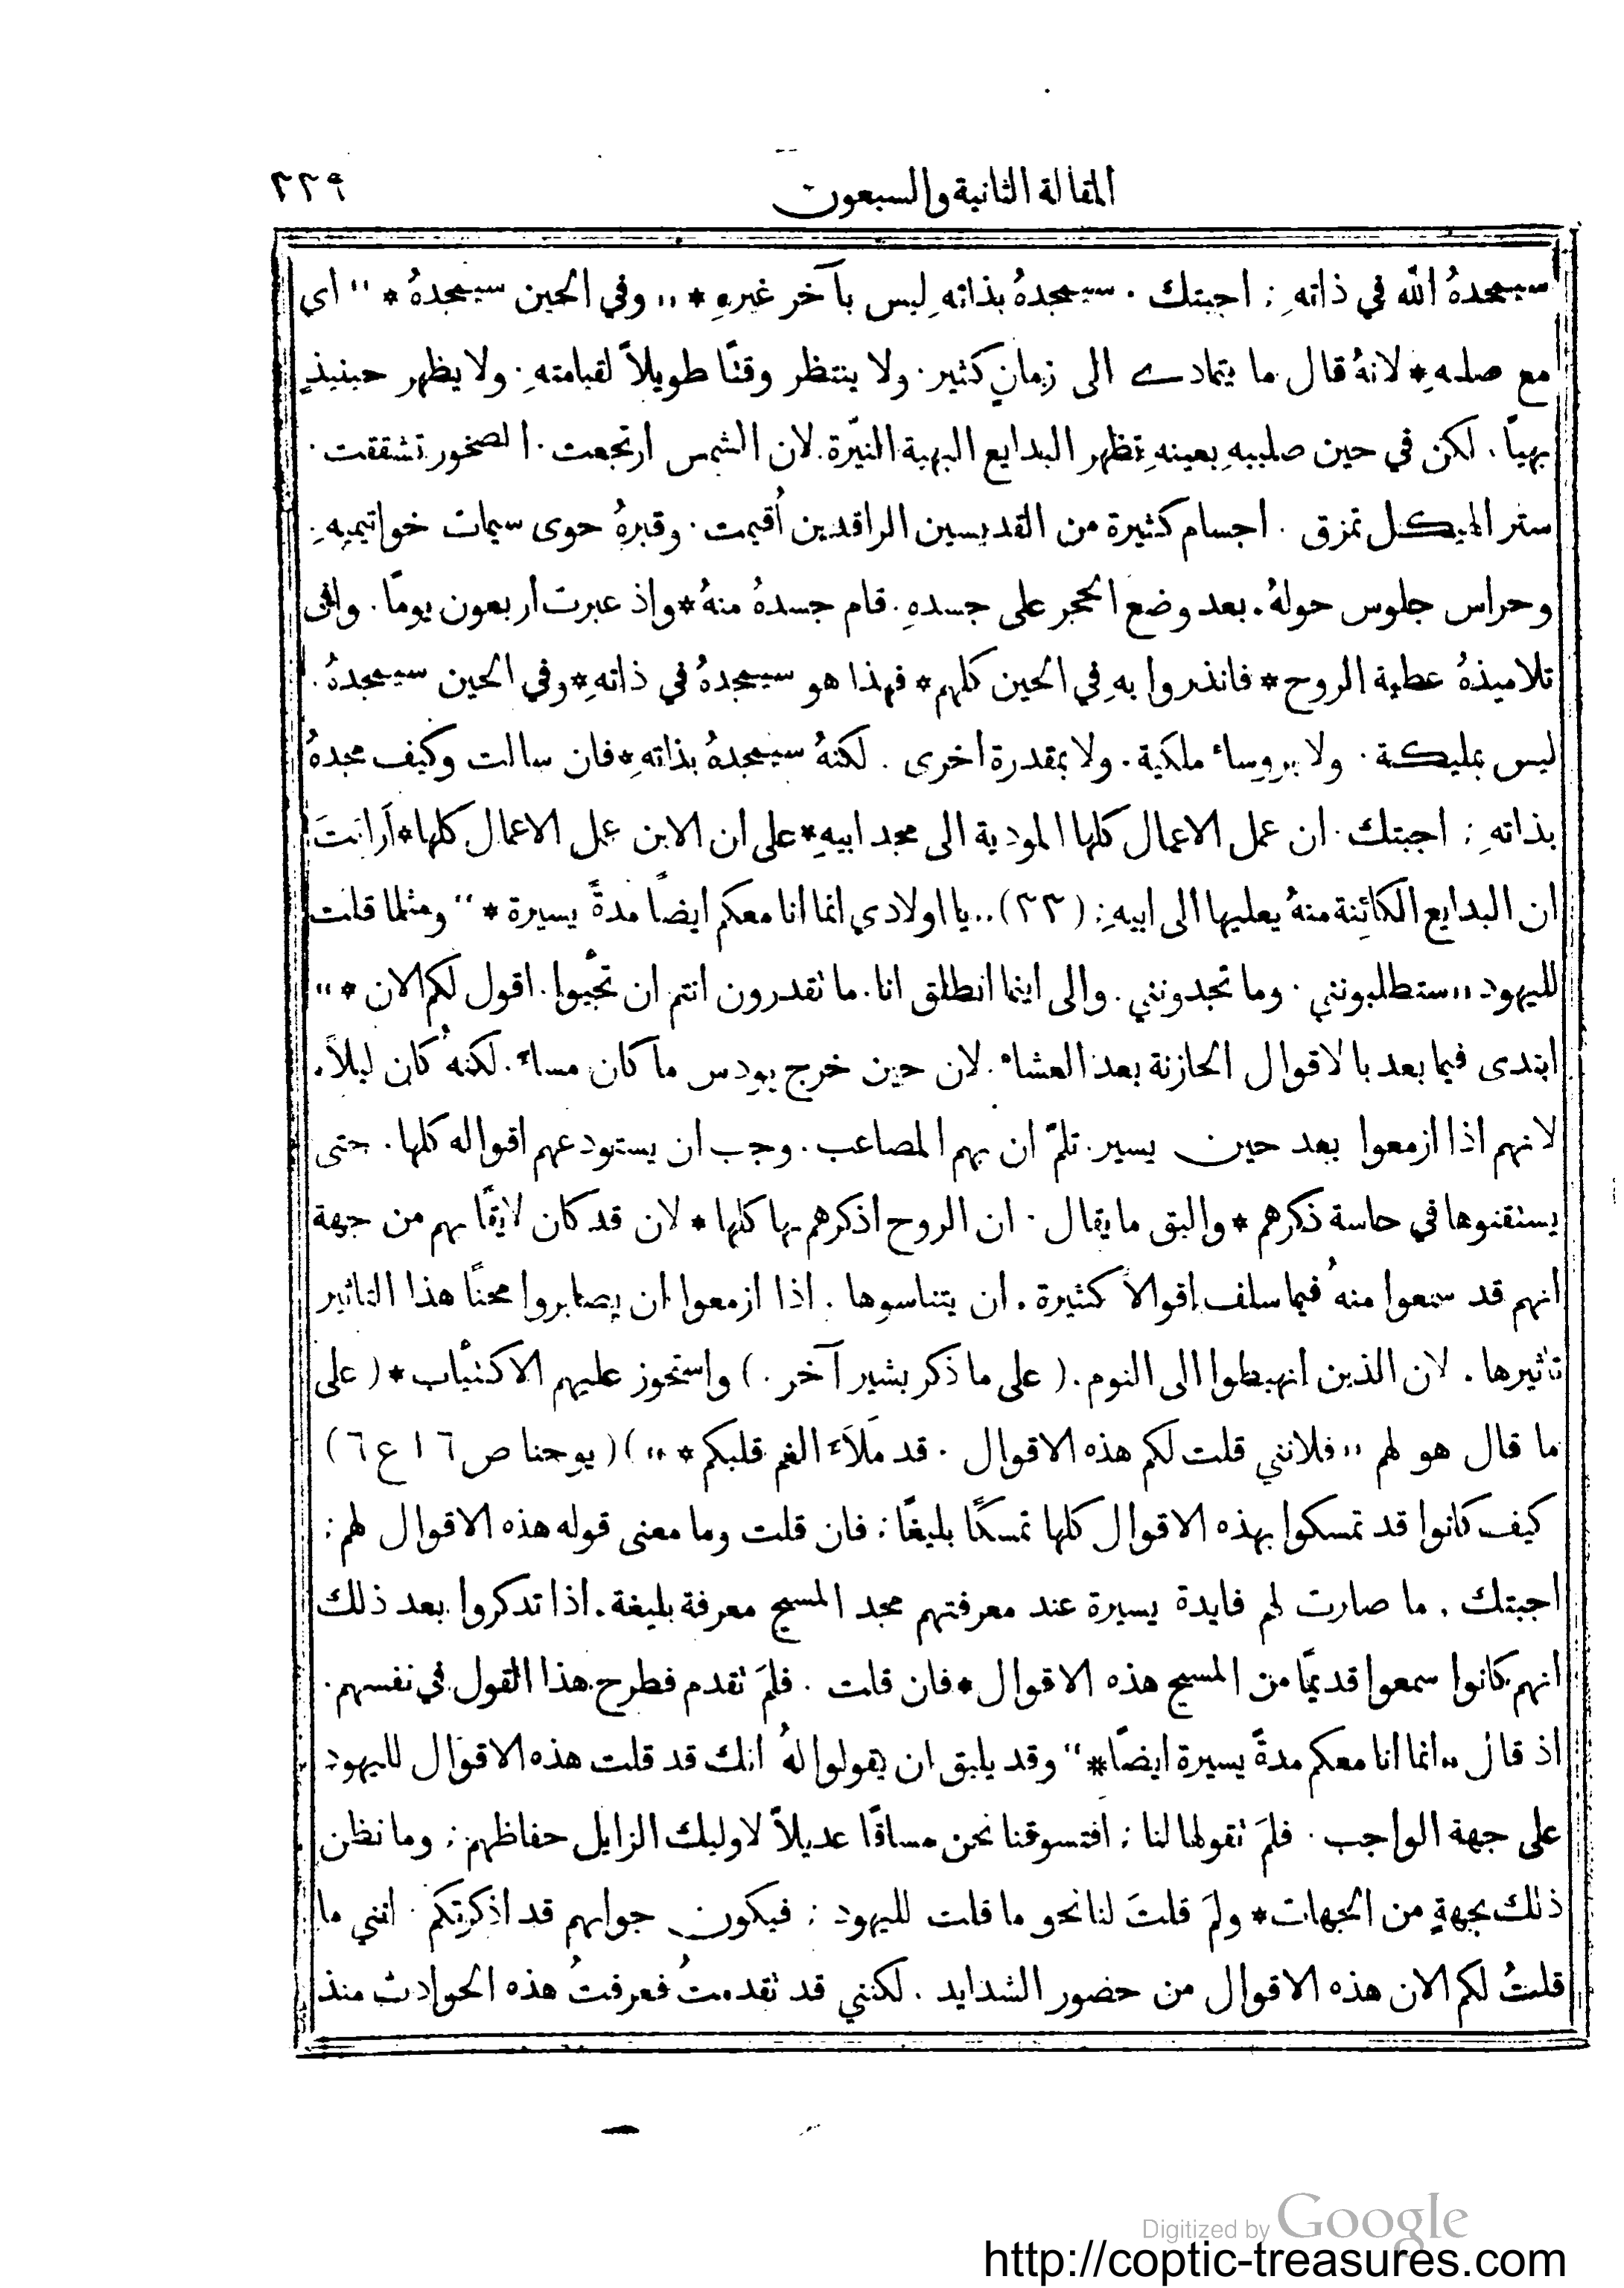 المقالة الثانية والسبعون ٢٢٩
سيمجدهُ الله في ذاتهِ ; اجبتك . سيمجدهُ بذاتهِ ليس بآخر غيرهِ * ,, وفي الحين سيمجدهُ * " اي
مع صلبهِ * لانهُ قال ما يتمادى الى زمانٍ كثير . ولا ينتظر وقتًا طويلاً لقيامتهِ . ولا يظهر حينيذٍ
بهياً . لكن في حين صليبهِ بعينهِ تظهر البدايع البهية النيّرة لان الشمس ارتجعت . الصخور تشققت .
ستر الهيكل تمزق . اجسام كثيرة من القديسين الراقدين أُقيمت . وقبرهُ حوى سيمات خواتيمهِ .
وحراس جلوس حولهُ . بعد وضع الحجر على جسدهِ . قام جسدهُ منهُ * واذ عبرت اربعون يومًا . وافى
تلاميذهُ عطية الروح * فانذروا بهِ في الحين كلهم * فهذا هو سيمجدهُ في ذاتهِ * وفي الحين سيمجدهُ .
ليس بمليكة . ولا بروساء ملكية . ولا بمقدرة اخرى . لكنهُ سيمجدهُ بذاتهِ * فان سالت وكيف مجدهُ
بذاتهِ ; اجبتك . ان عمل الاعمال كلها المودية الى مجد ابيهِ * على ان الابن عمل الاعمال كلها * أَرأيتَ
ان البدايع الكائنة منهُ يعليها الى ابيهِ ; (٣٣) ,, يا اولادي انما انا معكم ايضًا مدةً يسيرة * " ومثلما قلت
لليهود ,, ستطلبونني . وما تجدونني . والى اينما انطلق انا . ما تقدرون انتم ان تجيوا . اقول لكم الان * "
ابتدى فيما بعد بالاقوال الحازنة بعد العشاء . لان حين خرج يودس ما كان مساء . لكنهُ كان ليلاً .
لانهم اذا ازمعوا بعد حين يسير . تلمّ ان بهم المصاعب . وجب ان يستودعهم اقواله كلها . حتى
يستقنوها في حاسة ذكرهم * واليق ما يقال . ان الروح اذكرهم بها كلها * لان قد كان لايقًا بهم من جهة
انهم قد سمعوا منهُ فيما سلف اقوالاً كثيرة . ان يتناسوها . اذا ازمعوا ان يصابروا محنًا هذا التاثير
تاثيرها . لان الذين انهبطوا الى النوم . ( على ما ذكر بشير آخر . ) واستحوز عليهم الاكتئاب * ( على
ما قال هو لهم ,, فلانني قلت لكم هذه الاقوال . قد مَلأَء الغم قلبكم * ,, ) ( يوحنا ص ١٦ ع ٦ )
كيف كانوا قد تمسكوا بهذه الاقوال كلها تمسكًا بليغًا ; فان قلت وما معنى قوله هذه الاقوال لهم ;
اجبتك . ما صارت لهم فايدة يسيرة عند معرفتهم مجد المسيح معرفة بليغة . اذا تدكروا بعد ذلك
انهم كانوا سمعوا قديمًا من المسيح هذه الاقوال * فان قلت . فلمَ تقدم فطرح هذا القول في نفسهم .
اذ قال ,, انما انا معكم مدةً يسيرة ايضًا * " وقد يليق ان يقولوا لهُ انك قد قلت هذه الاقوال لليهود
على جهة الواجب . فلمَ تقولها لنا ; افتسوقنا نحن مساقًا عديلاً لاوليك الزايل حفاظهم ; وما نظن
ذلك بجهةٍ من الجهات * ولمَ قلتَ لنا نحو ما قلت لليهود ; فيكون جوابهم قد اذكرتكم . انني ما
قلتُ لكم الان هذه الاقوال من حضور الشدايد . لكنني قد تقدمتُ فعرفتُ هذه الحوادث منذ
Digitized by Google
http://coptic-treasures.com